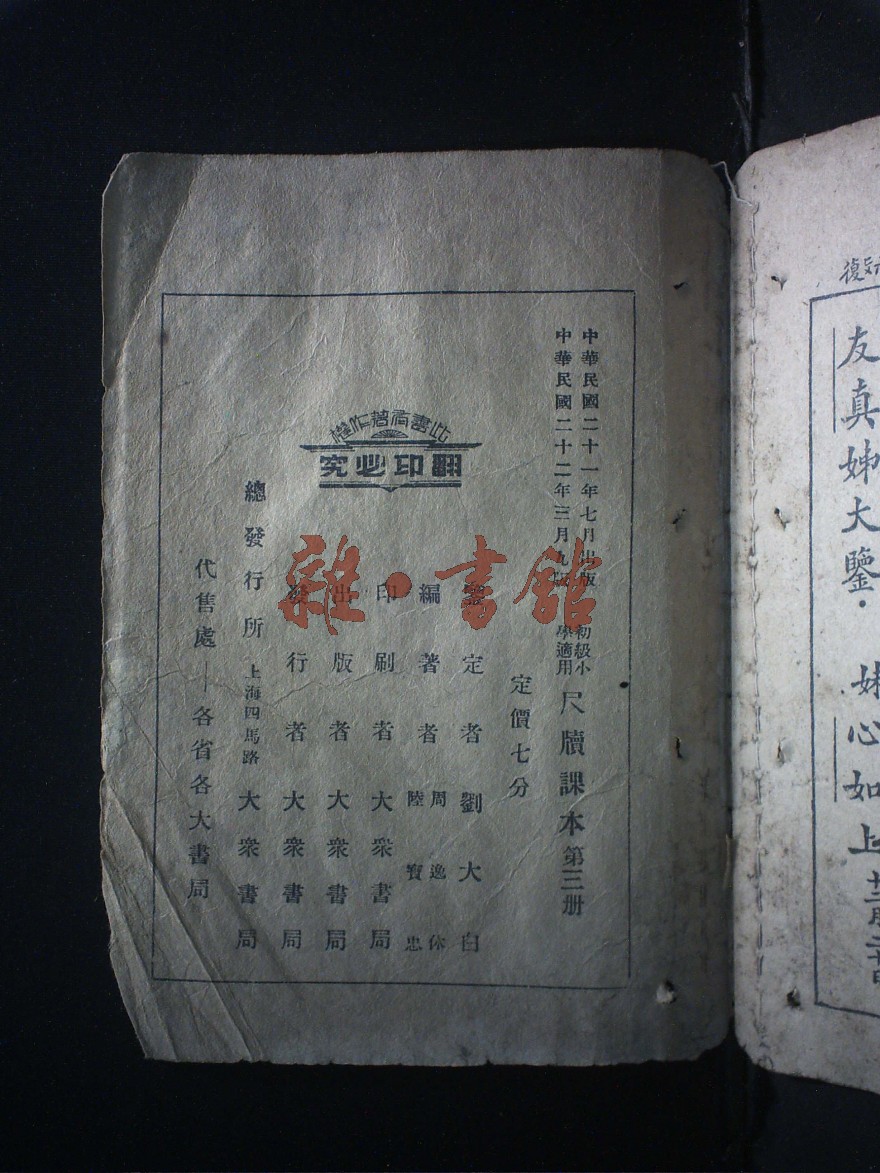 復
友真姊大鑒．
妹心如上
中華民國二十一年七月出版
中華民國二十二年三月九版
初級小學適用
尺牘課本第三册
定價七分
鑒定者 劉大白
編著者 周逸休 陸寶忠
印刷者 大衆書局
出版者 大衆書局
發行者 大衆書局
此書有著作權
翻印必究
總發行所 上海四馬路 大衆書局
代售處—各省各大書局
雜·書館